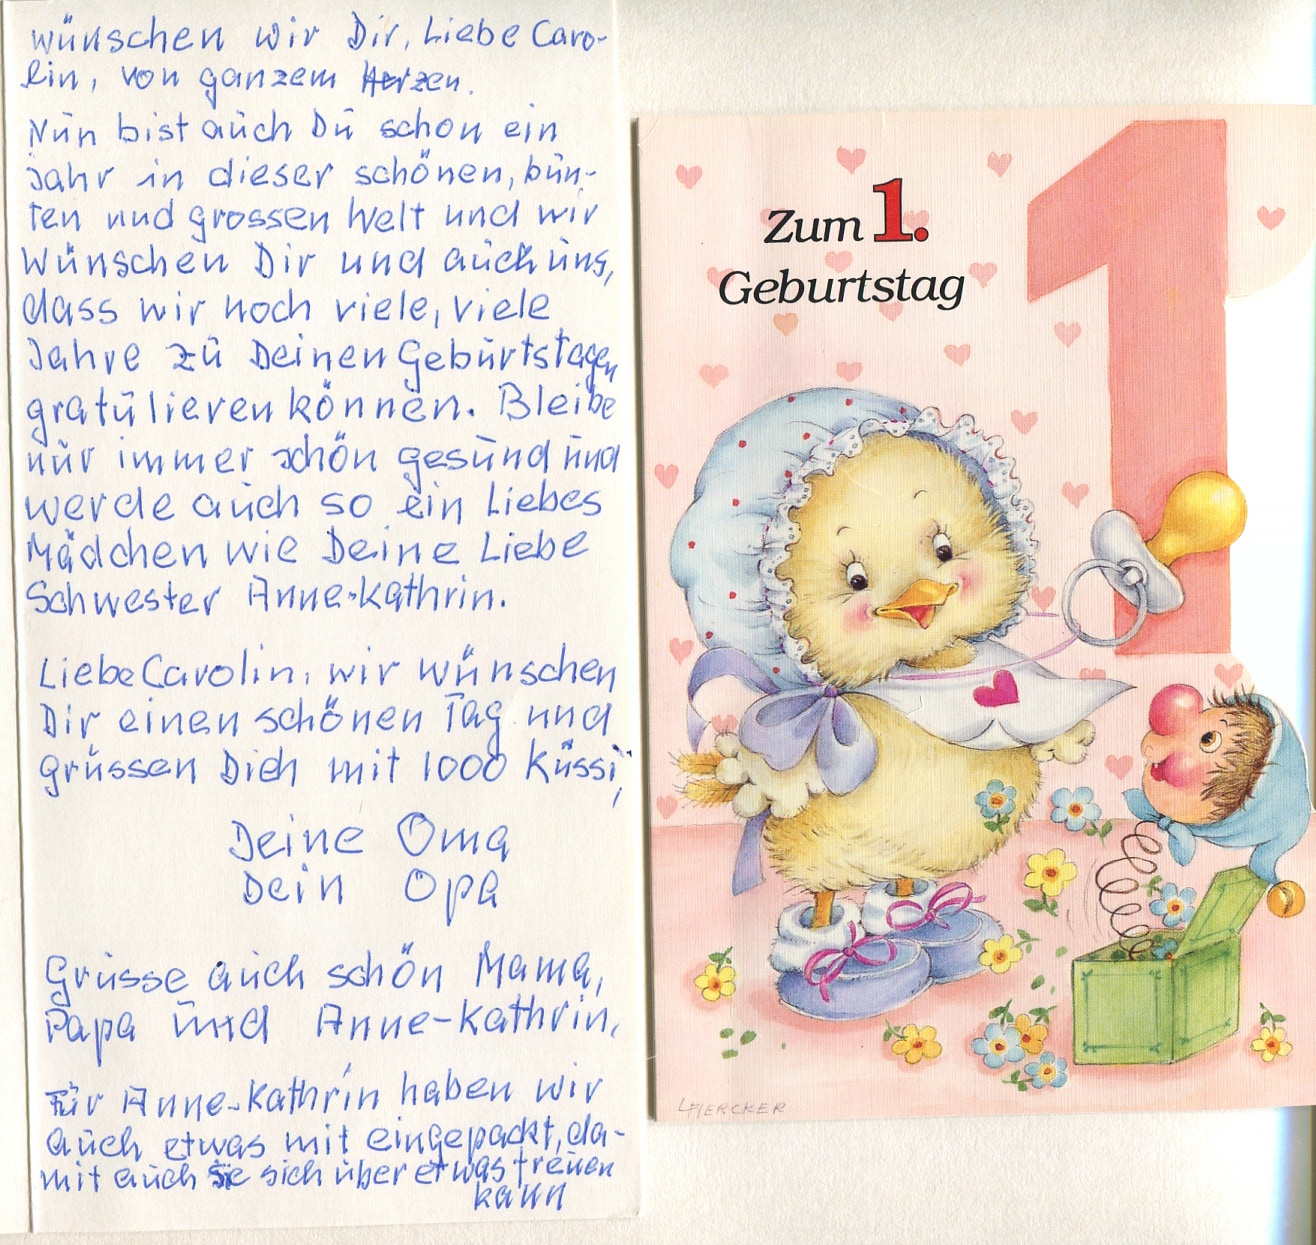 wünschen wir Dir, Liebe Caro-
lin, von ganzem Herzen.
Nun bist auch Du schon ein
Jahr in dieser schönen, bun-
ten und grossen Welt und wir
Wünschen Dir und auch uns,
dass wir noch viele, viele
Jahre zu Deinen Geburtstagen
gratulieren können. Bleibe
nur immer schön gesund und
werde auch so ein Liebes
Mädchen wie Deine Liebe
Schwester Anne-Kathrin.
Liebe Carolin, wir wünschen
Dir einen schönen Tag und
grüssen Dich mit 1000 Küssi,
Deine Oma
Dein Opa
Grüsse auch schön Mama,
Papa und Anne-Kathrin,
Für Anne-Kathrin haben wir
auch etwas mit eingepackt, da-
mit auch sie sich über etwas freuen
kann
Zum 1.
Geburtstag
1
LPIERCKER